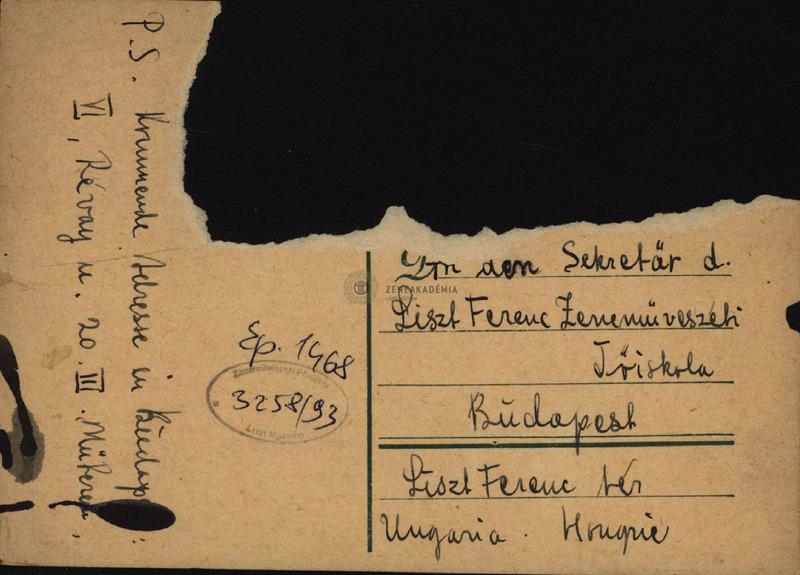 P.S. Kommende Adresse in Budap.:
VI, Révay u. 20. III. Műterem,
An den Sekretär d.
Liszt Ferenc Zeneművészeti
Főiskola
Budapest
Liszt Ferenc tér
Ungaria. Hongrie
Ep. 1468
Zeneművészeti Főiskola
3258/93
Liszt Múzeum
ZENEAKADÉMIA